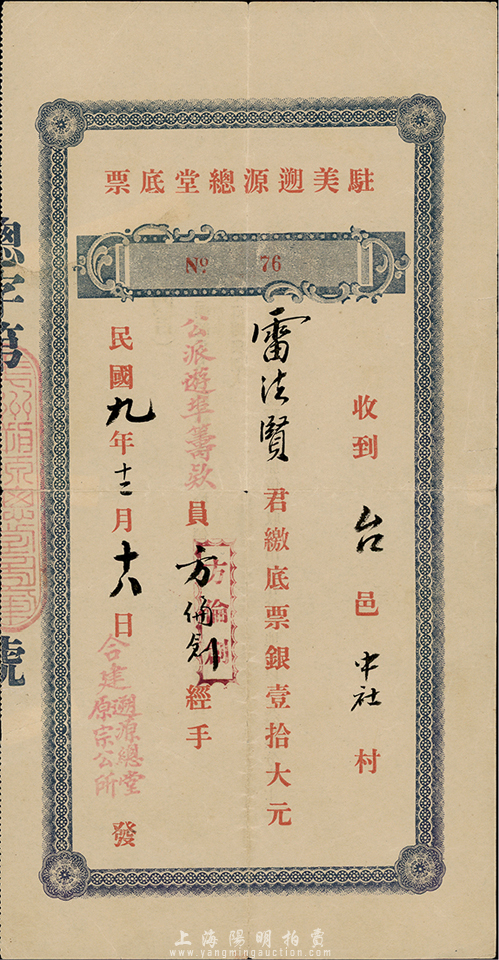 駐美遡源總堂底票
Nº 76
收到台邑中社村
雷法賢君繳底票銀壹拾大元
公派遊埠籌款員方倫創經手
方倫創
民國九年十二月十八日
合建遡源總堂
原宗公所
發
總字第
號
上海陽明拍賣
www.yangmingauction.com